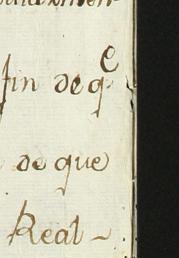 fin de q^e
de que
Real ~